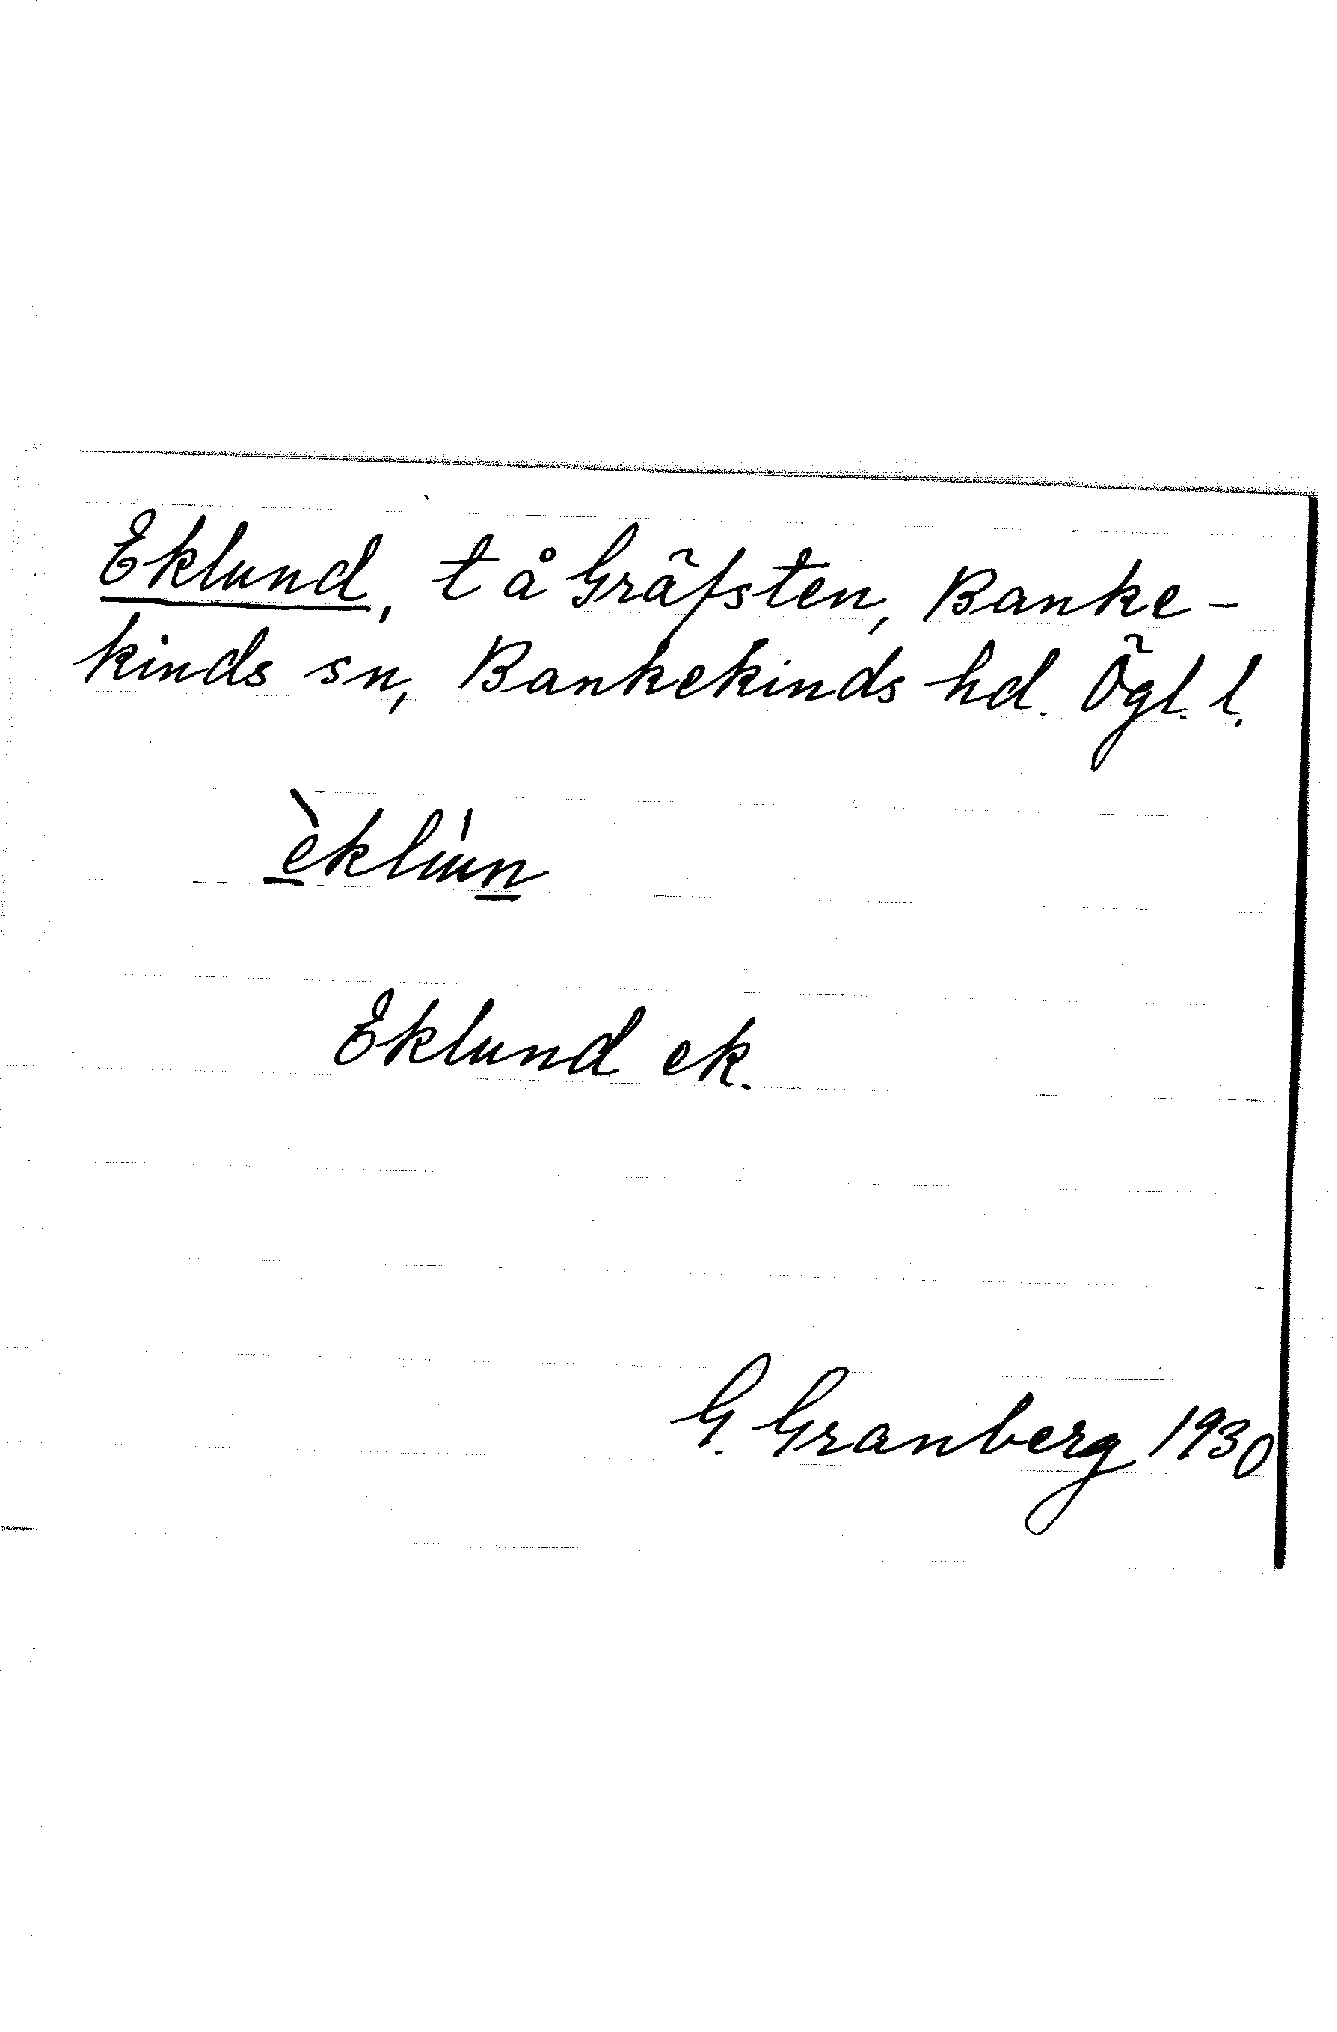 Eklund, t å Gräfsten, Banke-
kinds sn, Bankekinds hd. Ögl. l.
èkluǹn
Eklund ek.
G. Granberg 1930